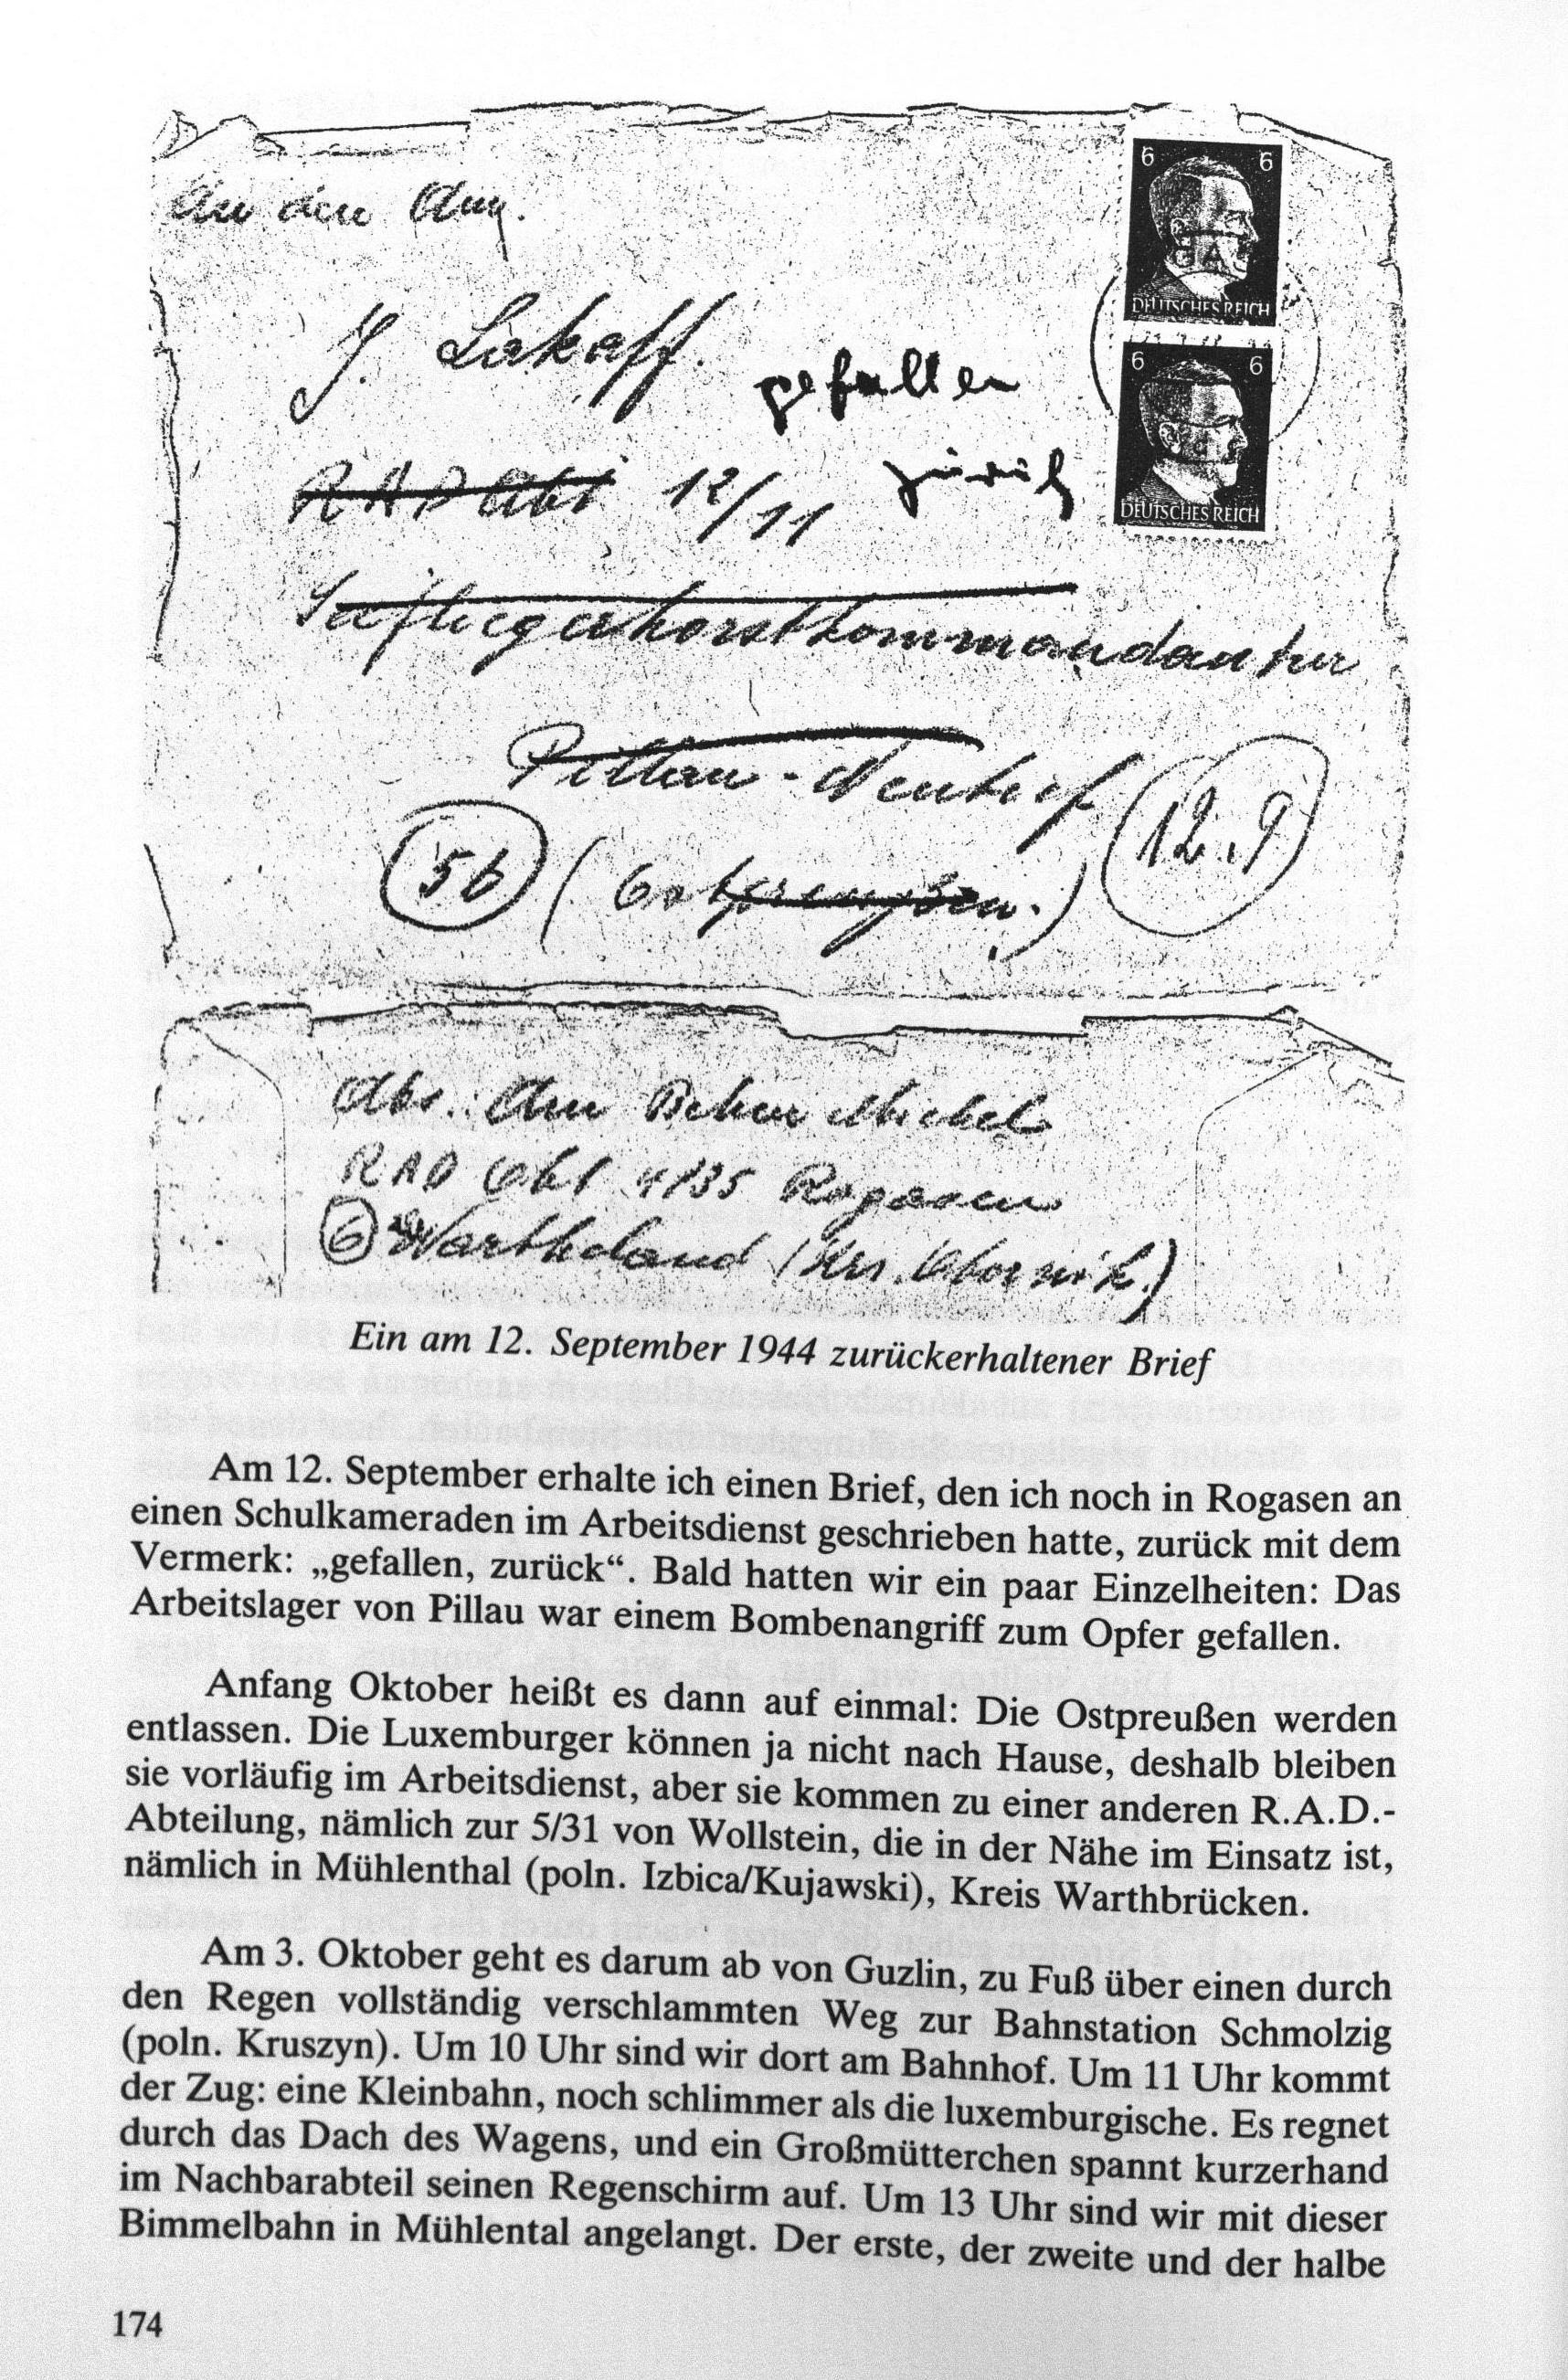 An den Am.
6 6
DEUTSCHES REICH
J. Lakaff.
gefallen
6 6
DEUTSCHES REICH
RAD Abt 12/11
zurück
Seefliegerhorstkommandantur
Pillau - Neutief
5b (Ostpreußen.) 12.9
Abs.: Am Behm Michel
RAD Abt 4/35 Rogasen
6 Wartheland (Krs. Obornik.)
Ein am 12. September 1944 zurückerhaltener Brief
Am 12. September erhalte ich einen Brief, den ich noch in Rogasen an
einen Schulkameraden im Arbeitsdienst geschrieben hatte, zurück mit dem
Vermerk: „gefallen, zurück“. Bald hatten wir ein paar Einzelheiten: Das
Arbeitslager von Pillau war einem Bombenangriff zum Opfer gefallen.
Anfang Oktober heißt es dann auf einmal: Die Ostpreußen werden
entlassen. Die Luxemburger können ja nicht nach Hause, deshalb bleiben
sie vorläufig im Arbeitsdienst, aber sie kommen zu einer anderen R.A.D.-
Abteilung, nämlich zur 5/31 von Wollstein, die in der Nähe im Einsatz ist,
nämlich in Mühlenthal (poln. Izbica/Kujawski), Kreis Warthbrücken.
Am 3. Oktober geht es darum ab von Guzlin, zu Fuß über einen durch
den Regen vollständig verschlammten Weg zur Bahnstation Schmolzig
(poln. Kruszyn). Um 10 Uhr sind wir dort am Bahnhof. Um 11 Uhr kommt
der Zug: eine Kleinbahn, noch schlimmer als die luxemburgische. Es regnet
durch das Dach des Wagens, und ein Großmütterchen spannt kurzerhand
im Nachbarabteil seinen Regenschirm auf. Um 13 Uhr sind wir mit dieser
Bimmelbahn in Mühlental angelangt. Der erste, der zweite und der halbe
174